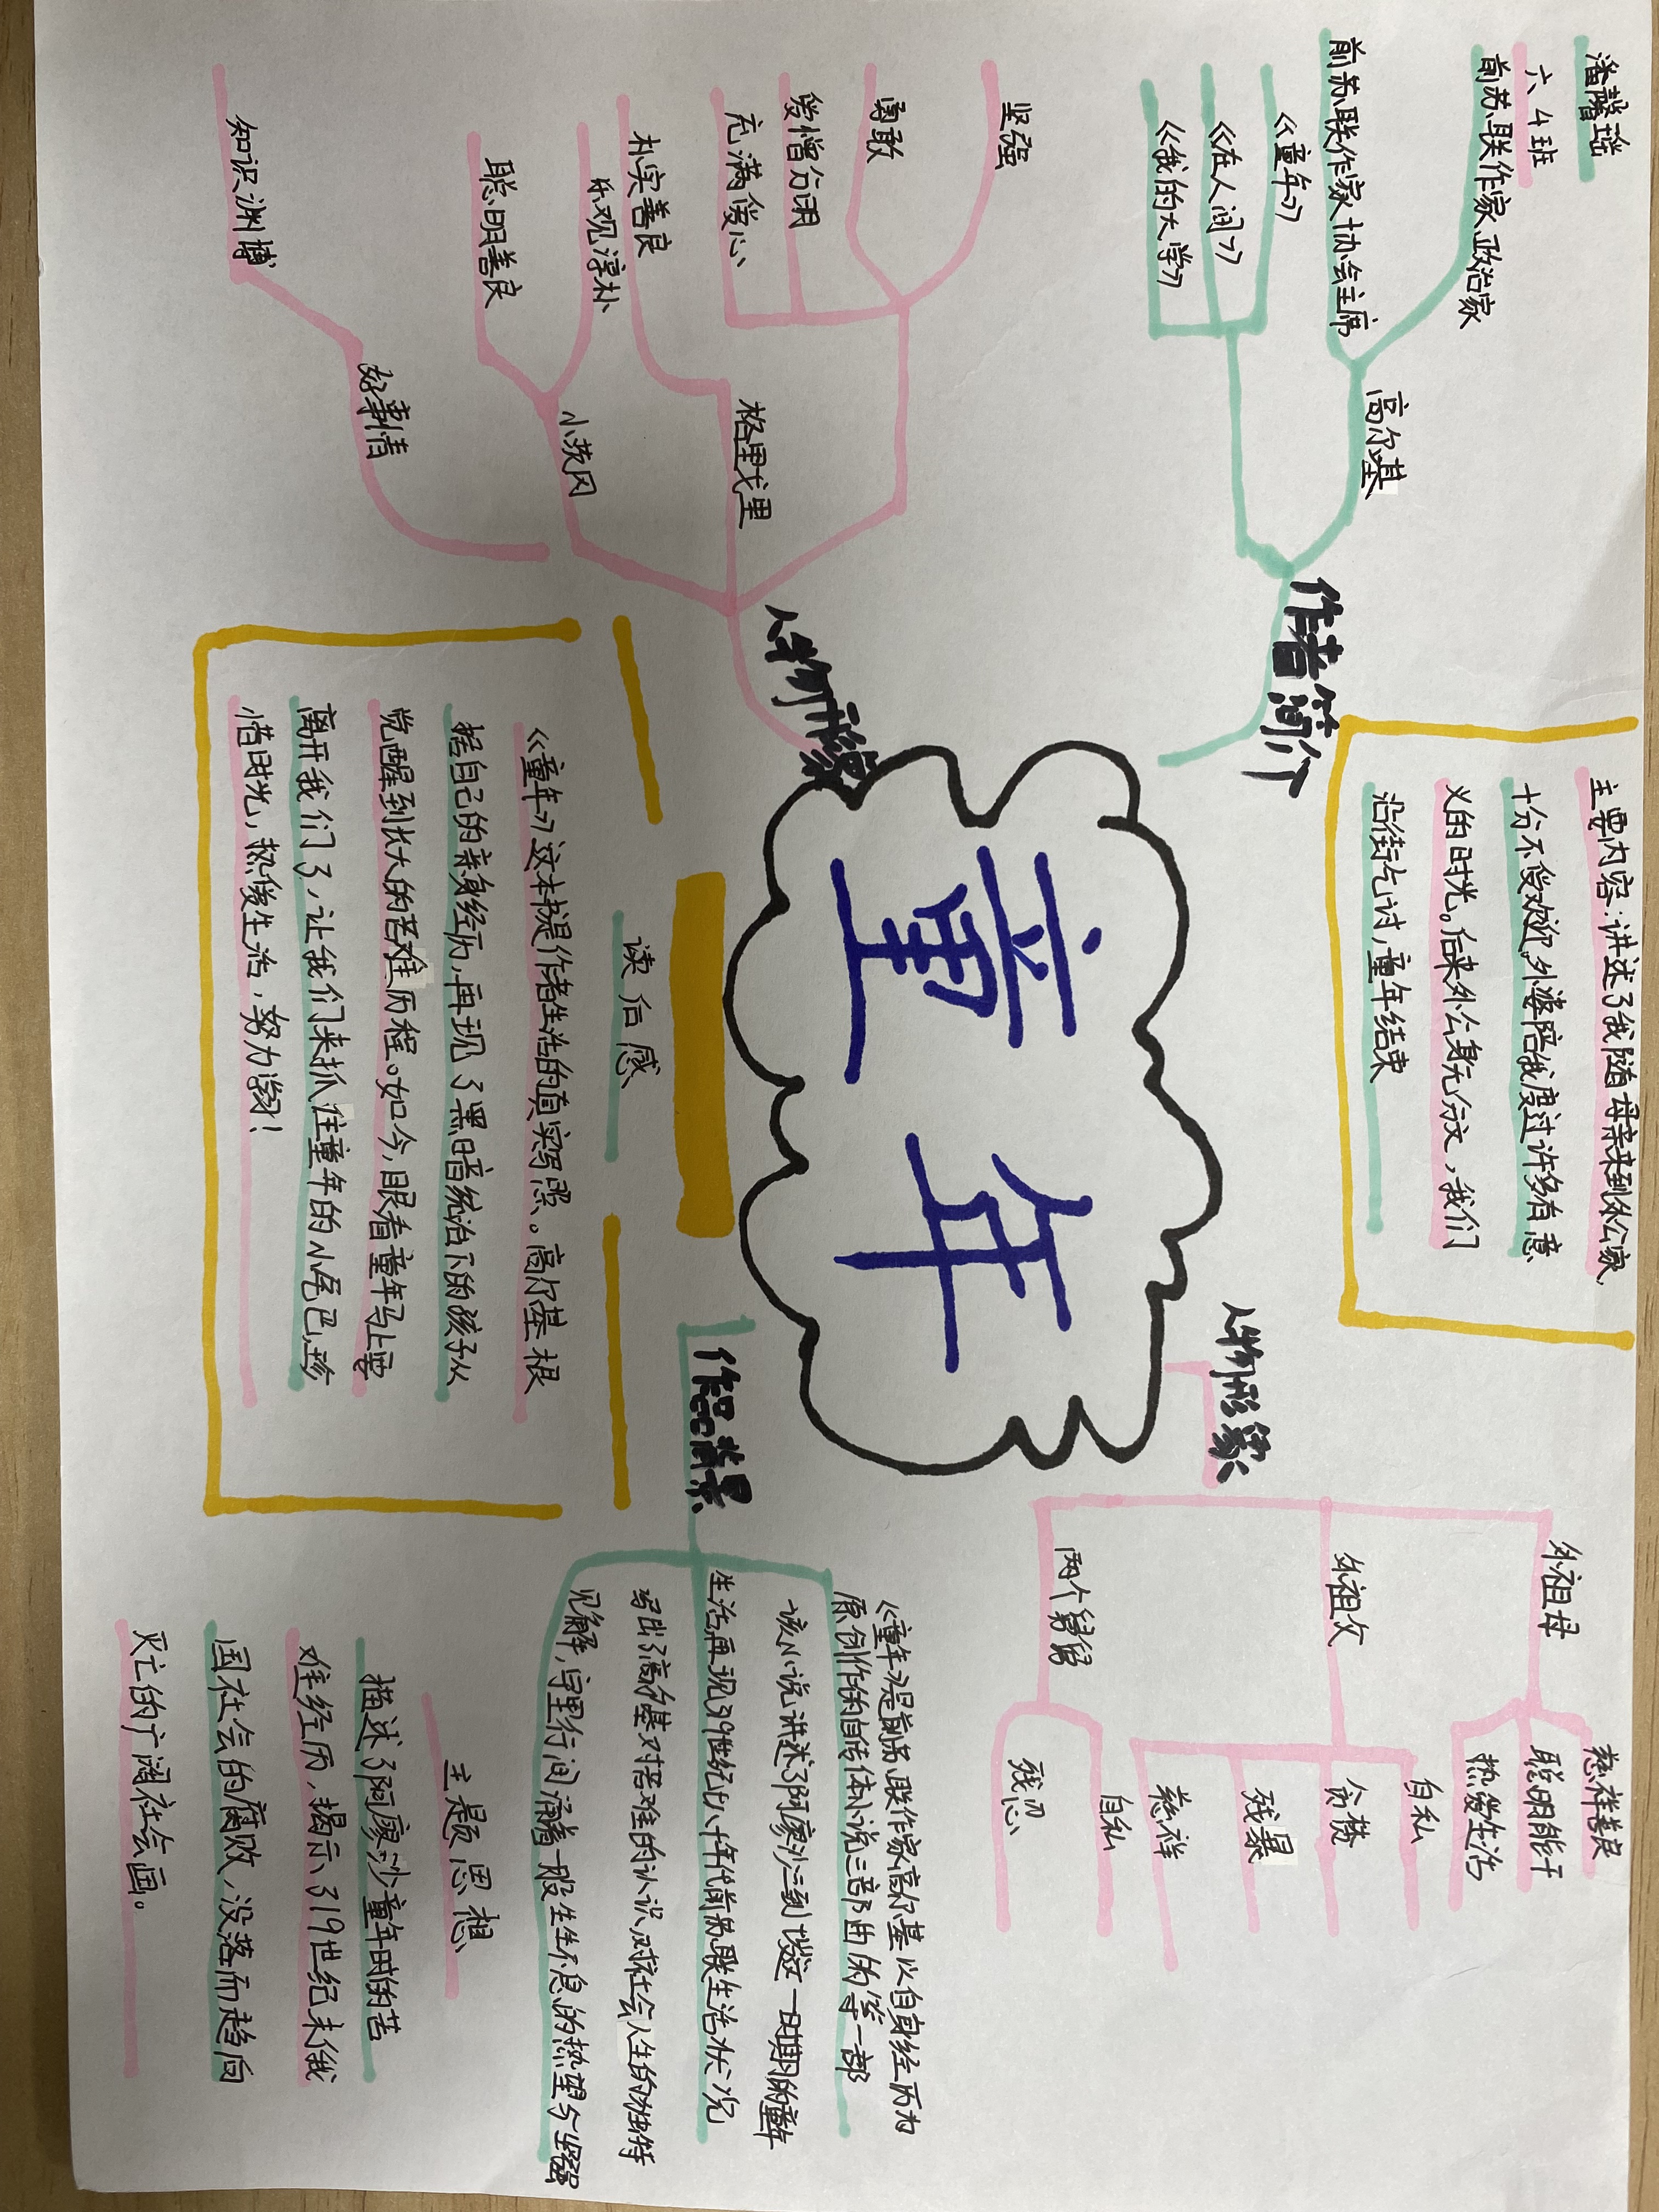 潘馨瑶
六、4班
前苏联作家政治家
前苏联作家协会主席
高尔基
《童年》
《在人间》
《我的大学》
作者简介
主要内容：讲述了我随母亲来到外公家，
十分不受欢迎。外婆陪俄度过许多有意
义的时光。后来外公身无分文，我们
沿街乞讨，童年结束
人物形象
外祖母
慈祥善良
聪明能干
热爱生活
外祖父
自私
贪婪
残暴
慈祥
两个舅舅
自私
残忍
童年
人物形象
坚强
勇敢
爱憎分明
充满爱心
格里戈里
朴实善良
小茨冈
乐观淳朴
聪明善良
好事情
知识渊博
读后感
《童年》这本书是作者生活的真实写照。高尔基根
据自己的亲身经历，再现了黑暗统治下的孩子从
觉醒到长大的苦难历程。如今，眼看童年马上要
离开我们了，让我们来抓住童年的小尾巴，珍
惜时光，热爱生活，努力学习！
作品背景
《童年》是前苏联作家高尔基以自身经历为
原创作的自传体小说三部曲的第一部
该小说讲述了阿廖沙三到十岁这一时期的童年
生活再现了19世纪七八十年代前苏联生活状况
写出了高尔基对苦难的认识，对社会人生的独特
见解，字里行间涌着一股生生不息的热望与坚强
主题思想
描述了阿廖沙童年时的苦
难经历，揭示了19世纪末俄
国社会的腐败，没落而趋向
灭亡的广阔社会画。